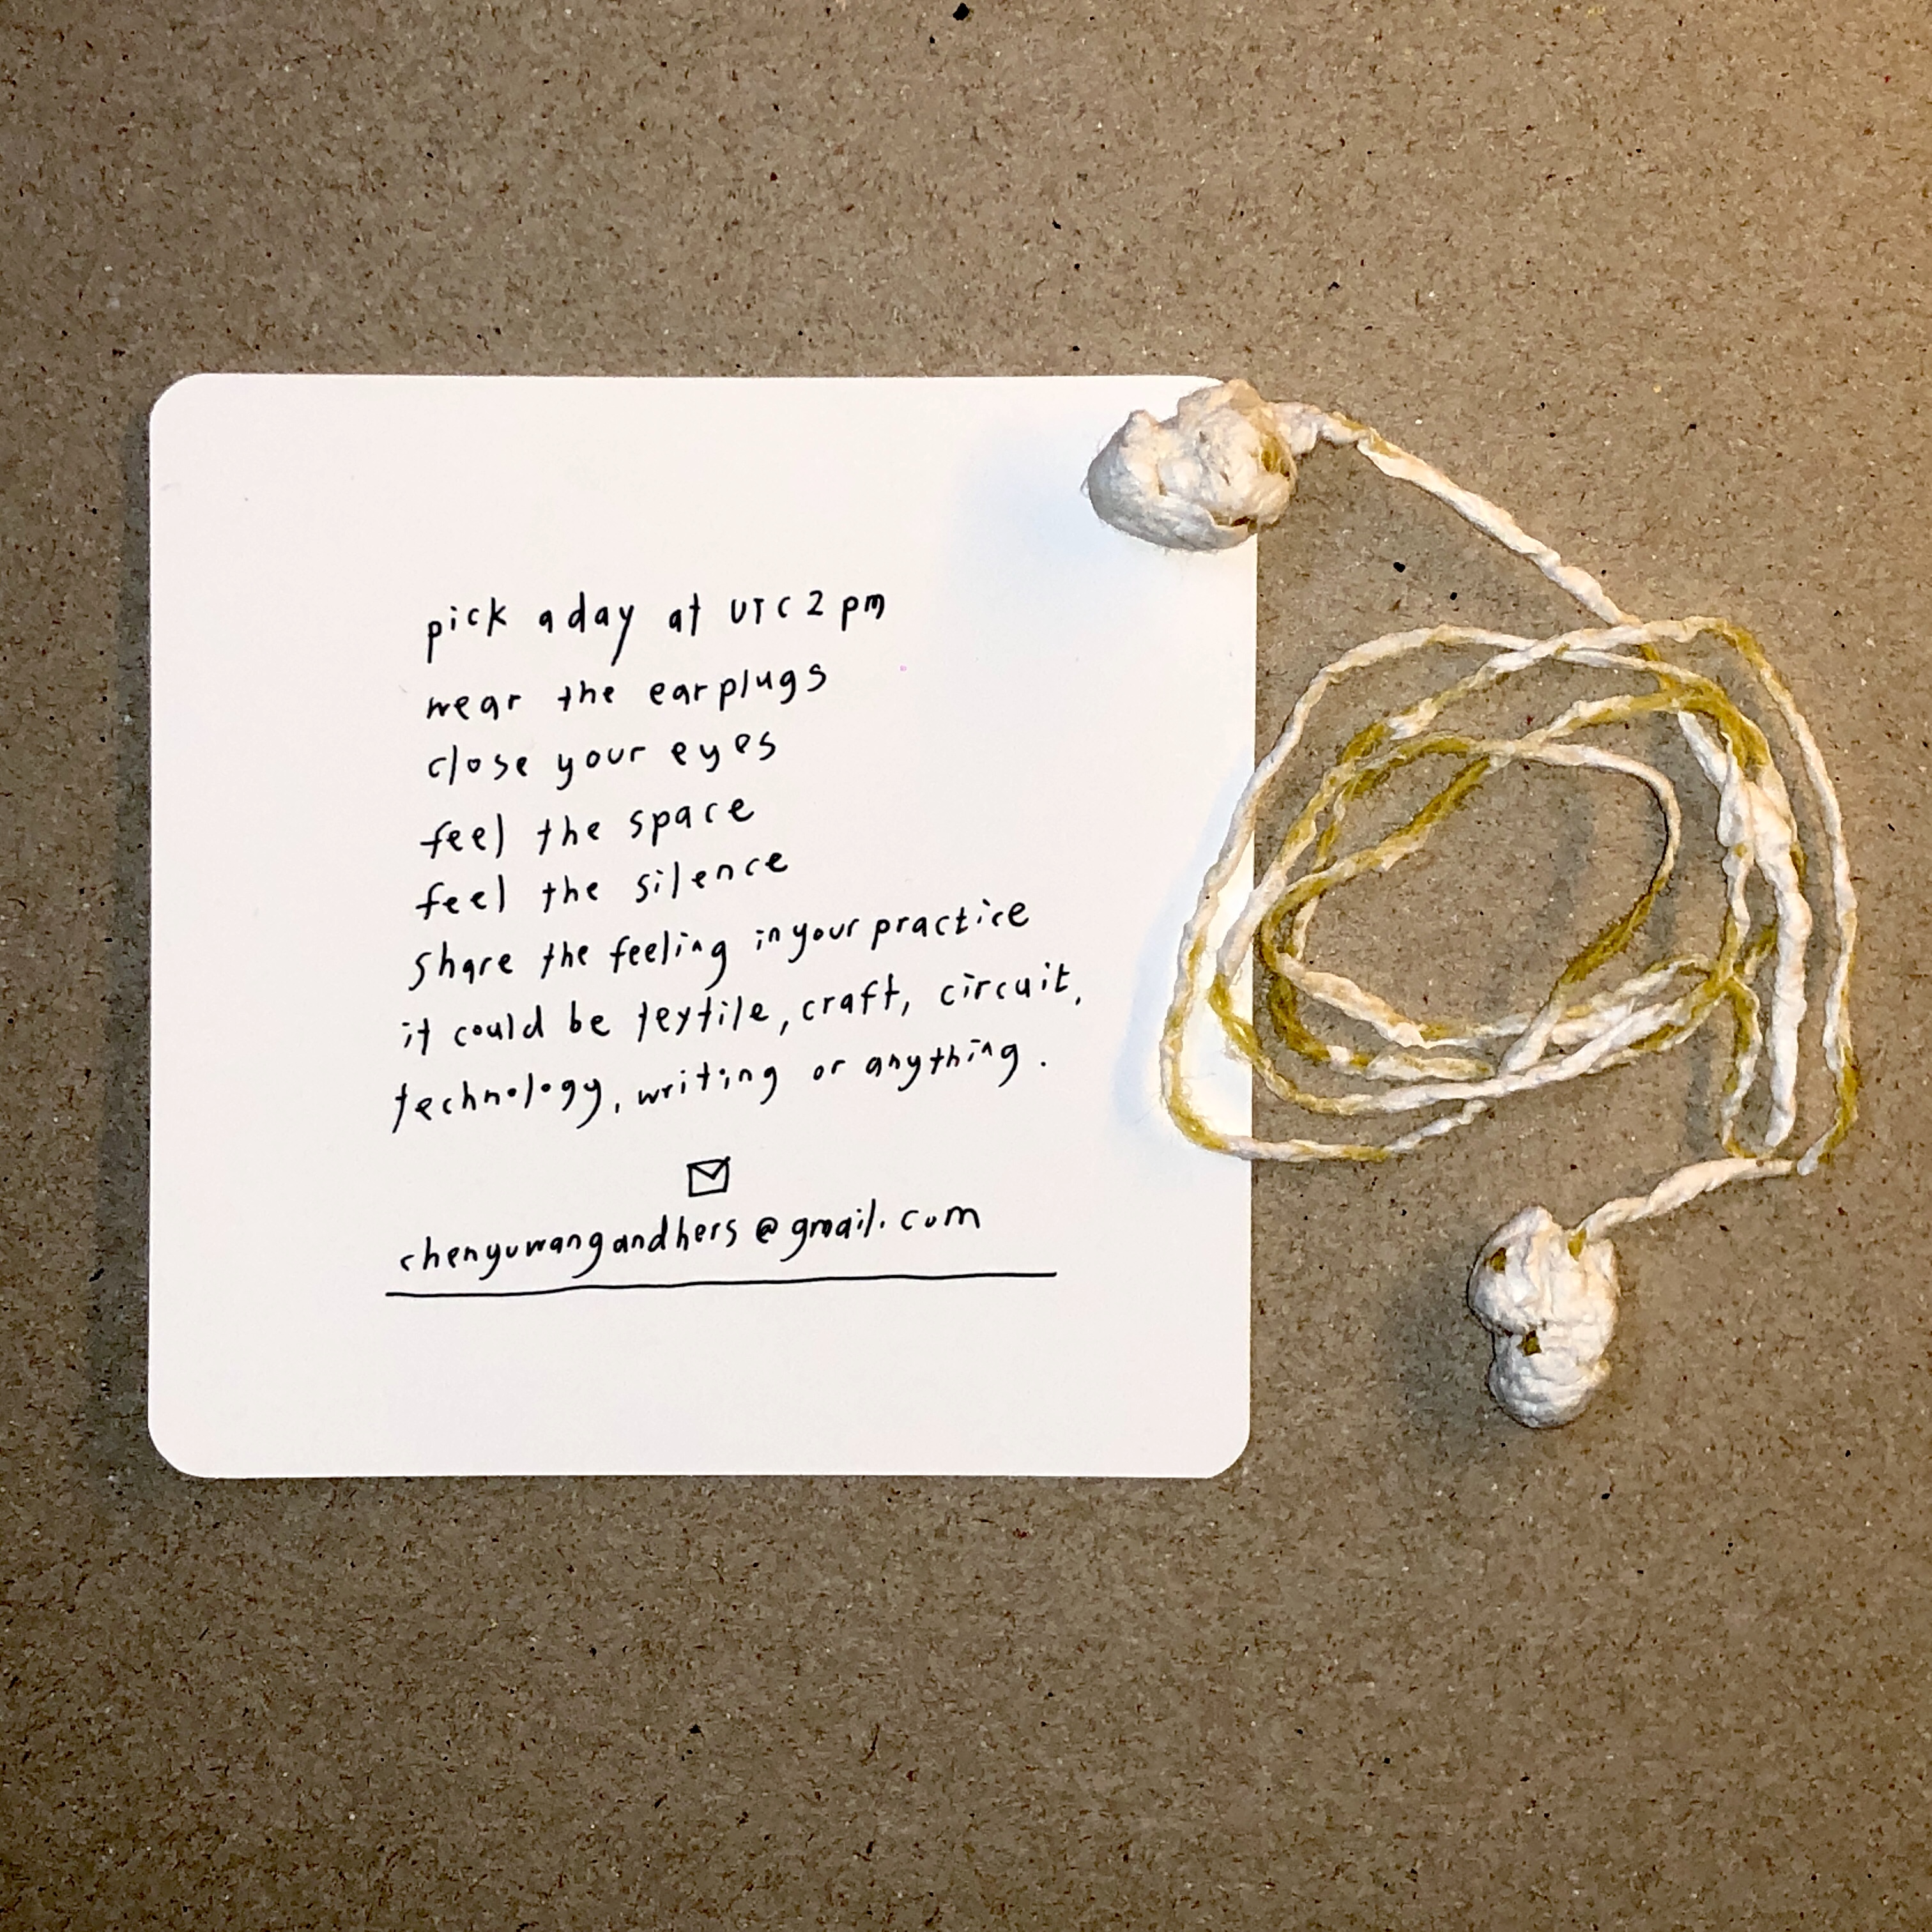 pick a day at UTC 2 pm
wear the earplugs
close your eyes
feel the space
feel the silence
share the feeling in your practice
it could be textile, craft, circuit,
technology, writing or anything.
chenyuwangandhers@gmail.com